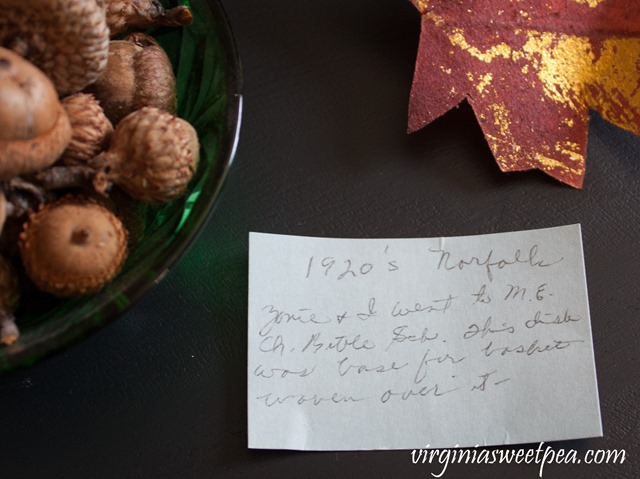 1920's Norfolk
Zonie & I went to M.E.
Ch. Bible Sch. This dish
was base for basket
woven over it-
virginiasweetpea.com